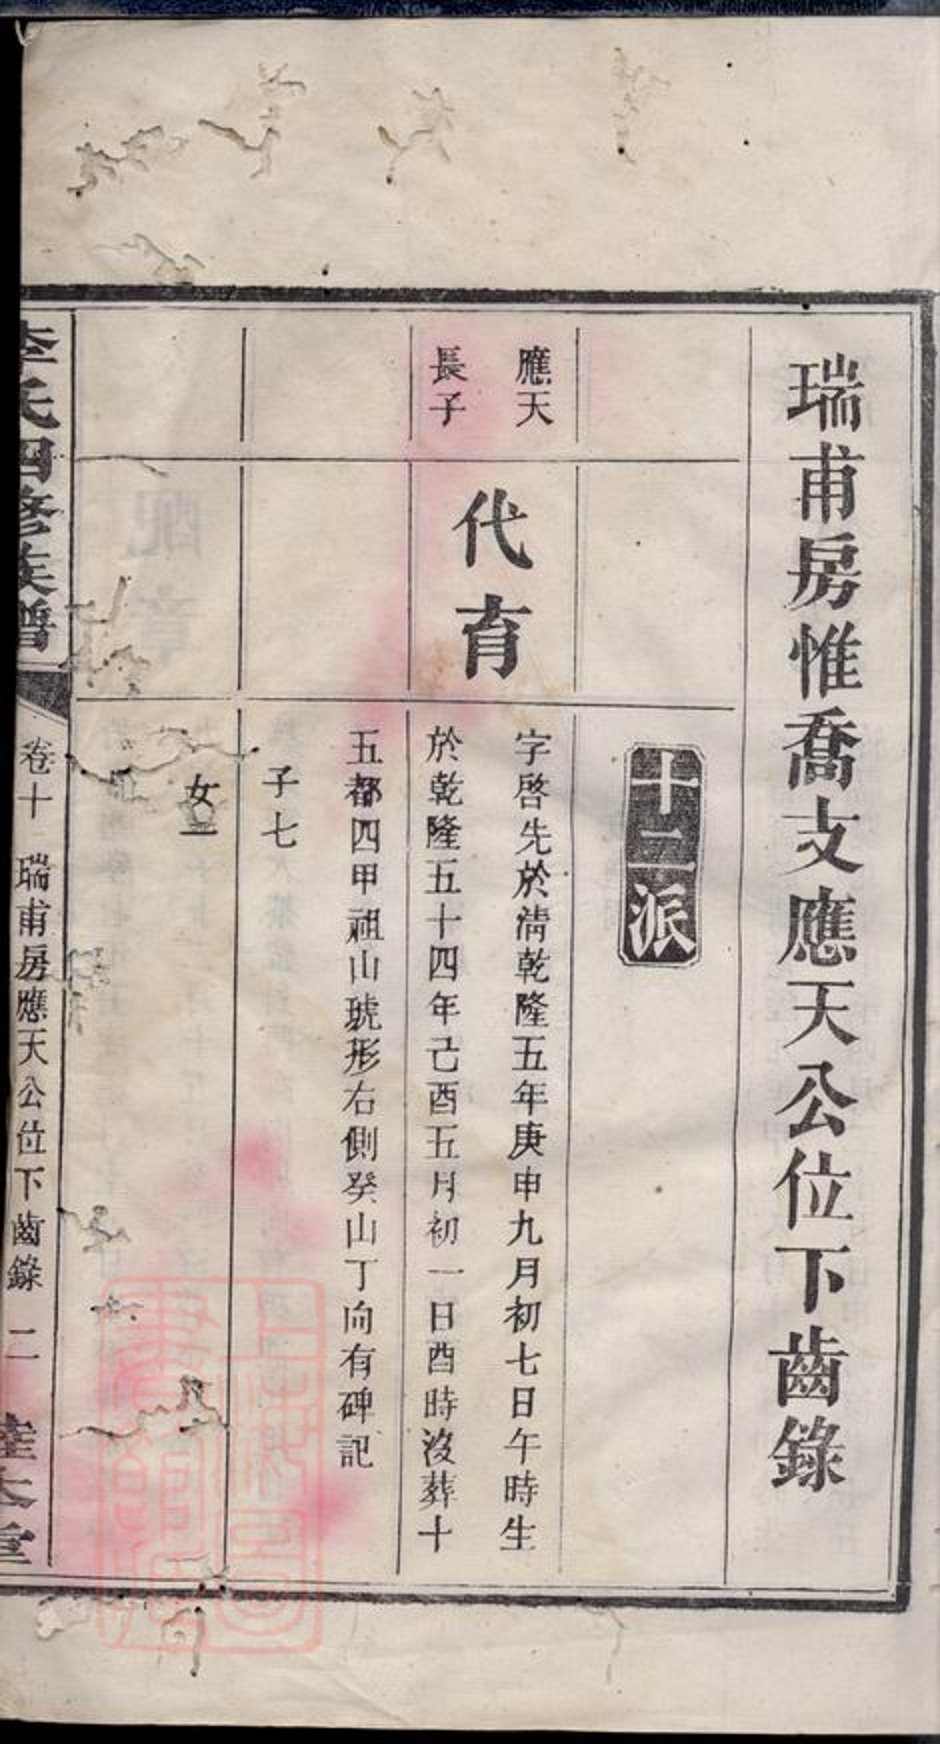 瑞甫房惟喬支應天公位下齒錄
十二派
應天
長子
代育
字啓先於清乾隆五年庚申九月初七日午時生
於乾隆五十四年己酉五月初一日酉時沒葬十
五都四甲祖山琥形右側癸山丁向有碑記
子七
女
李氏四修族譜
卷十 瑞甫房應天公位下齒錄 二